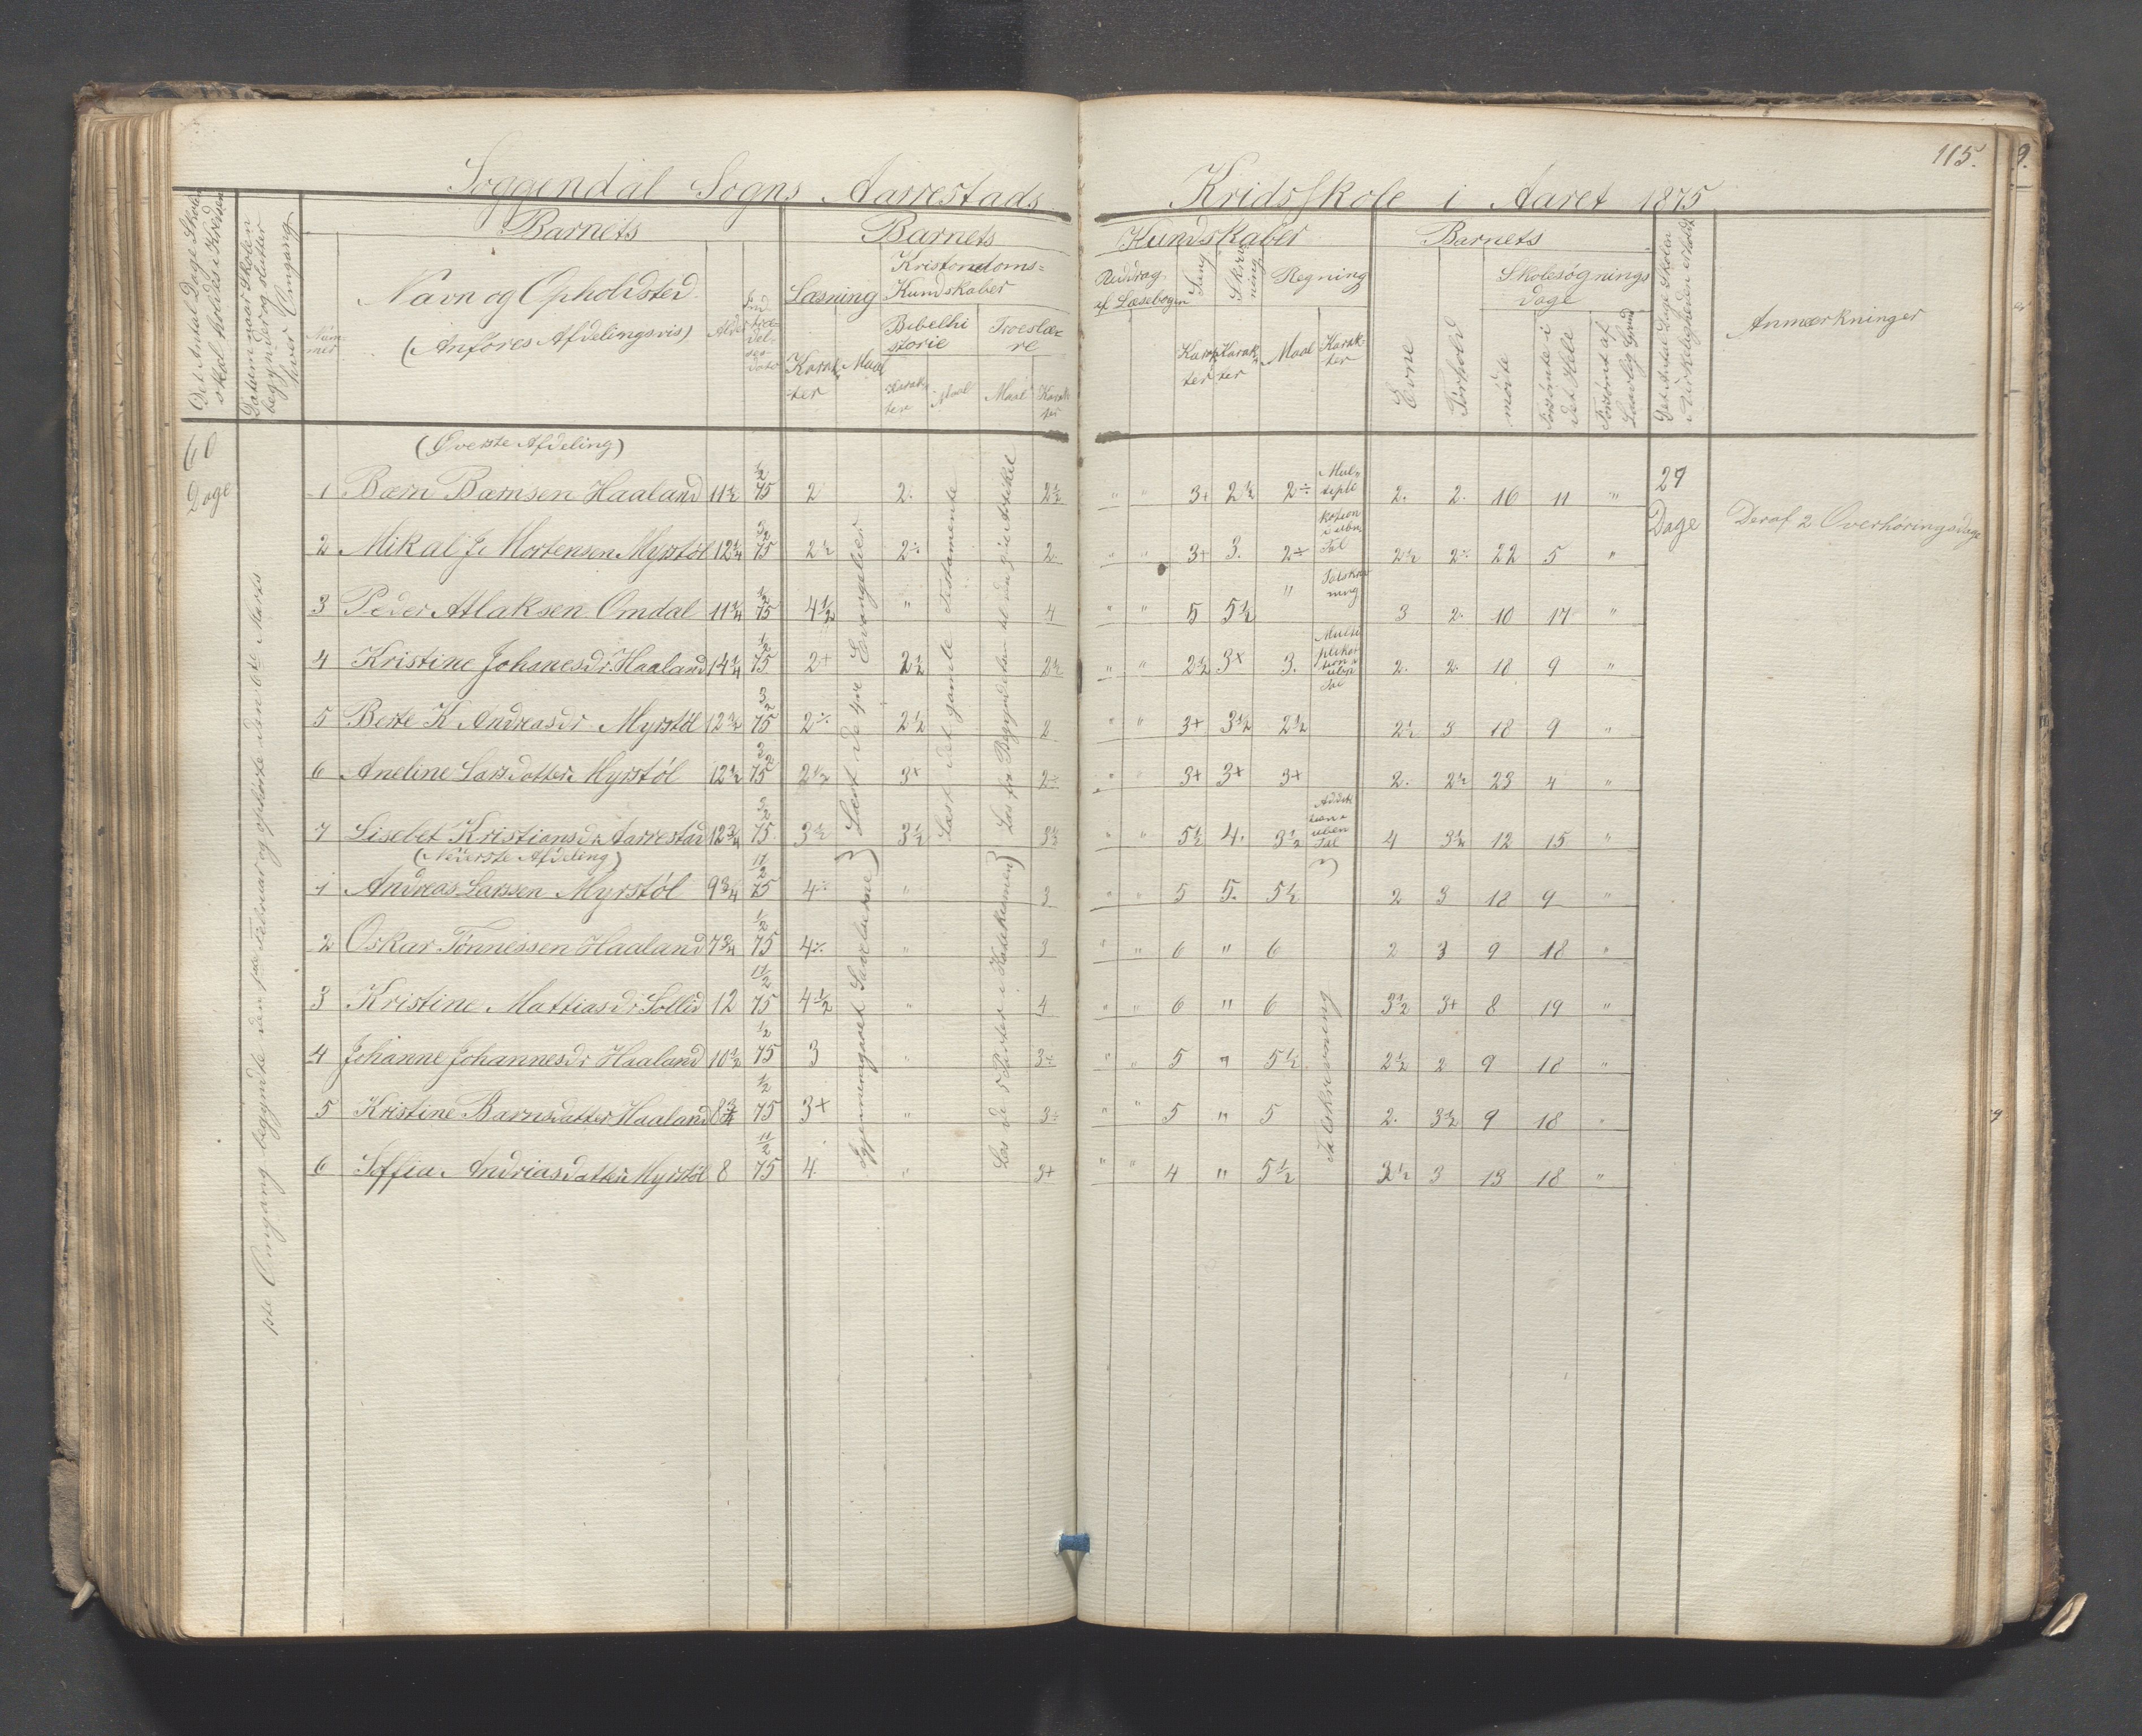 115.
Soggendal Sogns Aarrestads Kridsskole i Aaret 1875
Det Antal Dage Skolen skal holdes i Kredsen
Datum naar Skolen begynder og slutter hver Omgang
Barnets
Nummer
Navn og Opholdsted
(Anføres Afdelingsvis)
Alder
Indtrædelsesdato
Barnets Kundskaber
Læsning
Karakter
Maal
Kristendoms=Kundskaber
Bibelhistorie
Karakter
Maal
Troeslære
Maal
Karakter
Uddrag af Læsebogen
Sang
Karakter
Skrivning
Karakter
Regning
Maal
Karakter
Barnets
Evne
Forhold
Skolesøgnings dage
mødte
Forsømte i det Hele
Forsømt af Lovlig Grund
Det Antal Dage Skolen i Virkeligheden er holdt
Anmærkninger
60 Dage
1ste Omgang begyndte den 1ste Februar og ophørte den 6de Marts
(Øverste Afdeling)
1 Bærn Bærnsen Haaland 11½ ½ 75 2 2. 2½ " " 3+ 2½ 2÷ 2. 2. 16 11 "
2 Mikal J. Mortensen Myrstøl 12¼ 3/2 75 2½ 2÷ 2 " " 3+ 3. 2÷ 2½ 2÷ 22 5 "
3 Peder Atlaksen Omdal 11¼ ½ 75 4½ " 4 " " 5 5½ " 3 2. 10 17 "
4 Kristine Johanesdr. Haaland 14¼ ½ 75 2+ 2½ 2½ " " 2½ 3+ 3. 2. 2. 18 9 "
5 Berte K Andreasdr Myrstøl 12¾ 3/2 75 2÷ 2½ 2 " " 3+ 3½ 2½ 2½ 3 18 9 "
6 Aneline Larsdatter Myrstøl 12½ 3/2 75 2½ 3+ 2÷ " " 3+ 3+ 3+ 2. 2½ 23 4 "
7 Lisebet Kristiansdr Aarrestad 12¾ 3/2 75 3½ 3½ 3½ " " 5½ 4. 3½ 4 3½ 12 15 "
(Nederste Afdeling)
1 Andreas Larssen Myrstøl 9¾ 11/2 75 4÷ " 3 " " 5 5. 5½ 2 3 18 9 "
2 Oskar Tønnessen Haaland 7¾ ½ 75 4÷ " 3 " " 6 " 6 2 3 9 18 "
3 Kristine Mattiasdr Sollid 12 11/2 75 4½ " 4 " " 6 " 6 3½ 3+ 8 19 "
4 Johanne Johannesdr Haaland 10½ ½ 75 3 " 3÷ " " 5 " 5½ 2½ 2 9 18 "
5 Kristine Barnsdatter Haaland 8¾ ½ 75 3+ " 3÷ " " 5 " 5 2. 3½ 9 18 "
6 Soffia Andriasdatter Myrstøl 8 11/2 75 4 " 3+ " " 4 " 5½ 3½ 3 13 18 "
Læst de fire Evangelier
Gjennemgaaet
Læst det gamle Testamente
Læs fra Begyndelsen til den 3die Artikel
Læs de 5 Parter i Katekismen
Multiplikation i uben. Tal
Talskrivning
Multiplikation uben Tal
Addition uben Tal
Talskrivning
27 Dage
Deraf 2 Overhøringsdage